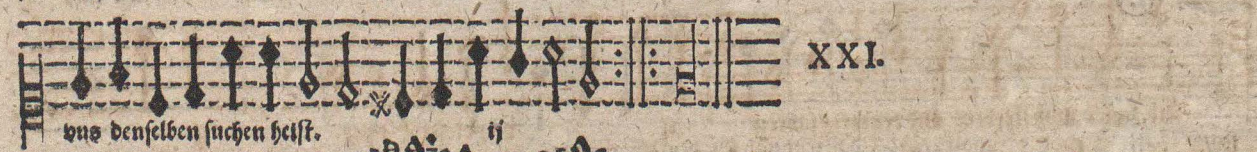 XXI.
vns denſelben ſuchen heiſt. ij